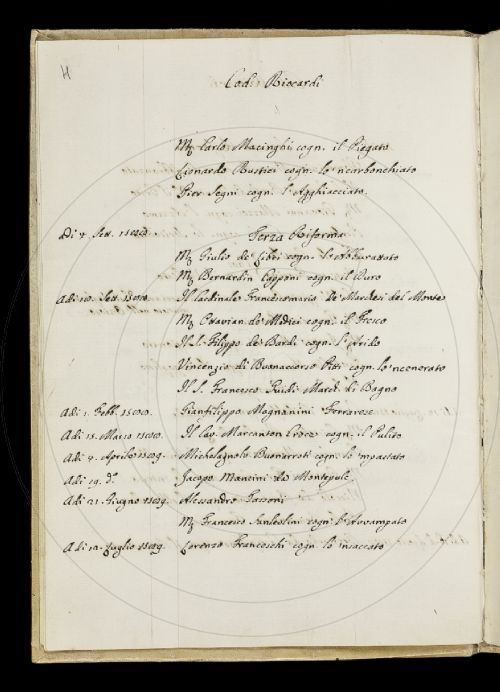 Cod. Riccardi
Mr. Carlo Macinghi cogn. il Piegato
Lionardo Bustici cogn. lo 'ncarbonchiato
Pier Segni cogn. l'Agghiacciato.
Adi Sett. Terza Riforma
Mr. Giulio de' Libri cogn. l'Abburattato
Mr. Bernardin Capponi cogn. il Duro
Adi 10. Sett. Il Cardinale Francescomaria De' Marchesi del Monte
Mr. Ottavian de' Medici cogn. il Fresco
Il S. Filippo de' Bardi cogn. l'Arilo
Vincenzio di Buonaccorso Pitti cogn. lo 'ncenerato
Il S. Francesco Guidi March. di Bagno
Adi 1. Febb. Gianfilippo Magnanini Ferrarese
Adi 15. Marzo Il Cav. Marcanton cogn. il Pulito
Adi Aprile Michelagnolo Buonarroti cogn. lo 'mpastato
Adi 19. do. Jacopo Mancini da Montepulc.
Adi 21. Giugno Alessandro Tassoni
Mr. Francesco Sanleolini cogn. l'Avvampato
Adi Luglio Lorenzo Franceschi cogn. lo 'nsaccato